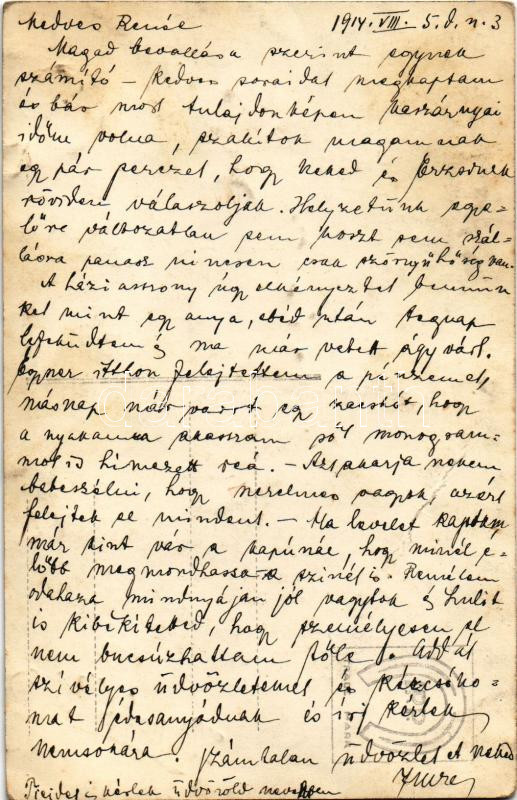 Kedves Renée 1914. VIII. 5. d. n. 3
Magad bevallása szerint egynek
számító - kedves soraidat megkaptam
és bár most tulajdonképen kaszárnyai
időm volna, szakítok magamnak
egy pár perczet, hogy neked és Erzsinek
röviden válaszoljak. Helyzetünk egye-
lőre változatlan sem koszt sem szál-
lásra panasz nincsen csak szörnyű hőség van.
A háziasszony úgy elkényeztet bennün
ket mint egy anya, ebéd után tegnap
lefeküdtem és ma már vetett ágy várt.
Egyszer itthon felejtettem a pénzemet,
másnap már varrt egy kacskót, hogy
a nyakamba akasszam sőt monogram-
mot is hímezett reá. - Azt akarja nekem
bebeszélni, hogy szerelmes vagyok, azért
felejtek el mindent. - Ha levelet kaptam,
már kint vár a kapúnál, hogy minél e-
lőbb megmondhassa színét is. Remélem
odahaza mindnyájan jól vagytok és
is kibékítetted, hogy személyesen el
nem bucsúzhattam tőle. Add át
szívélyes üdvözletemet és kézcsóko-
mat édesanyádnak és írj kérlek
nemsokára. Számtalan üdvözlet neked
Imre
kérlek üdvözöld nevemben